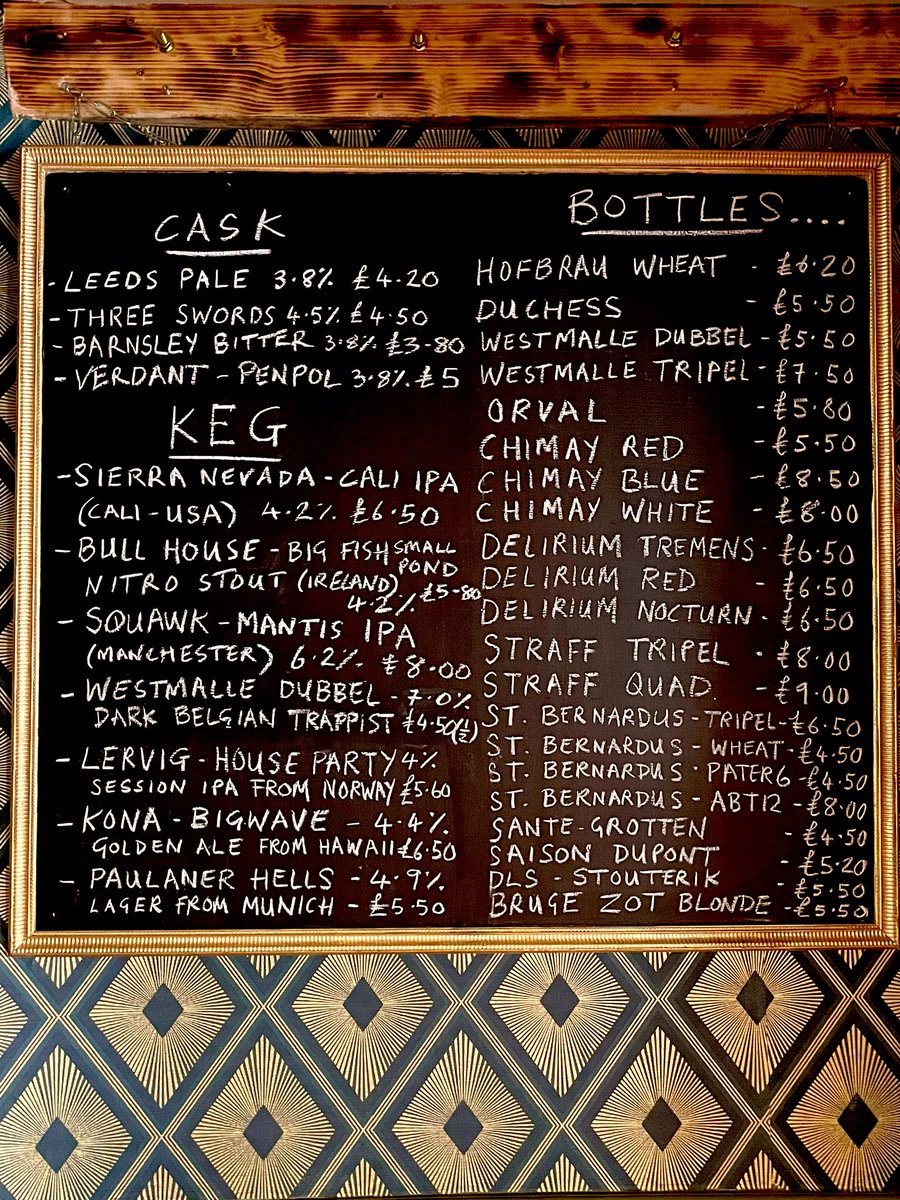 CASK
- LEEDS PALE 3.8% £4.20
- THREE SWORDS 4.5% £4.50
- BARNSLEY BITTER 3.8% £3-80
- VERDANT - PENPOL 3.8% £5
KEG
- SIERRA NEVADA - CALI IPA
(CALI-USA) 4.2% £6.50
- BULL HOUSE - BIG FISH SMALL POND
NITRO STOUT (IRELAND) 4.2% £5-80
- SQUAWK - MANTIS IPA
(MANCHESTER) 6.2% £8.00
- WESTMALLE DUBBEL - 7.0%
DARK BELGIAN TRAPPIST £4.50 (½)
- LERVIG - HOUSE PARTY 4%
SESSION IPA FROM NORWAY £5.60
- KONA - BIGWAVE - 4.4%
GOLDEN ALE FROM HAWAII £6.50
- PAULANER HELLS - 4.9%
LAGER FROM MUNICH - £5.50
BOTTLES....
HOFBRAU WHEAT - £6.20
DUCHESS - £5.50
WESTMALLE DUBBEL - £5.50
WESTMALLE TRIPEL - £7.50
ORVAL - £5.80
CHIMAY RED - £5.50
CHIMAY BLUE - £8.50
CHIMAY WHITE - £8.00
DELIRIUM TREMENS - £6.50
DELIRIUM RED - £6.50
DELIRIUM NOCTURN - £6.50
STRAFF TRIPEL - £8.00
STRAFF QUAD. - £9.00
ST. BERNARDUS - TRIPEL - £6.50
ST. BERNARDUS - WHEAT - £4.50
ST. BERNARDUS - PATER 6 - £4.50
ST. BERNARDUS - ABT12 - £8.00
SANTE-GROTTEN - £4.50
SAISON DUPONT - £5.20
DLS - STOUTERIK - £5.50
BRUGE ZOT BLONDE - £5.50